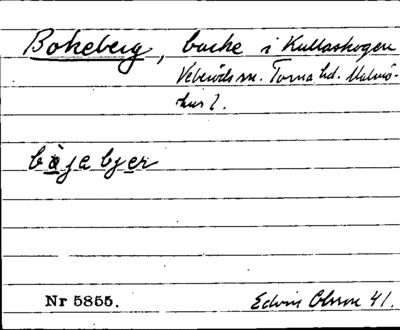 Bokeberg, backe i Kullaskogen
Veberöds sn. Torna hd. Malmö-
hus l.
bo̱ja bjer
Nr 5855.
Edvin Olsson 41.